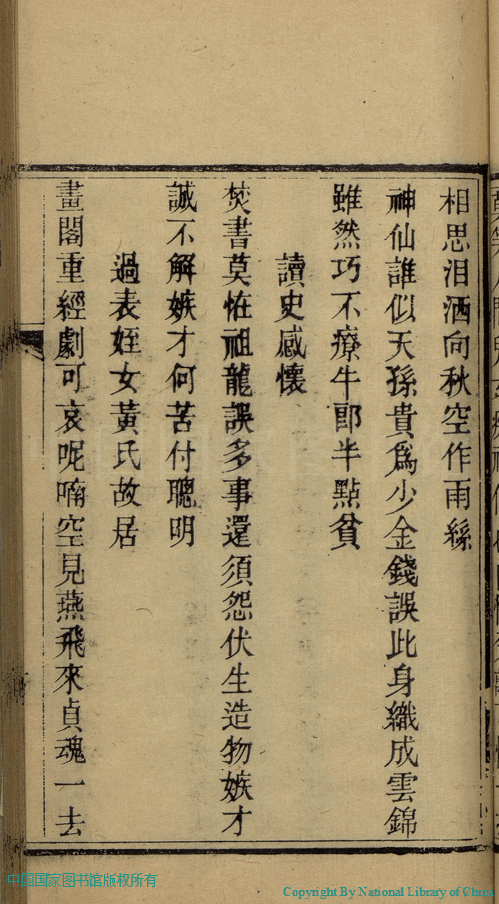 相思泪洒向秋空作雨絲
神仙誰似天孫貴爲少金錢誤此身織成雲錦
雖然巧不療牛郎半點貧
讀史感懷
焚書莫怪祖龍誤多事還須怨伏生造物嫉才
誠不解嫉才何苦付聰明
過表姪女黃氏故居
畫閣重經劇可哀呢喃空見燕飛來貞魂一去
中国国家图书馆版权所有
Copyright By National Library of China